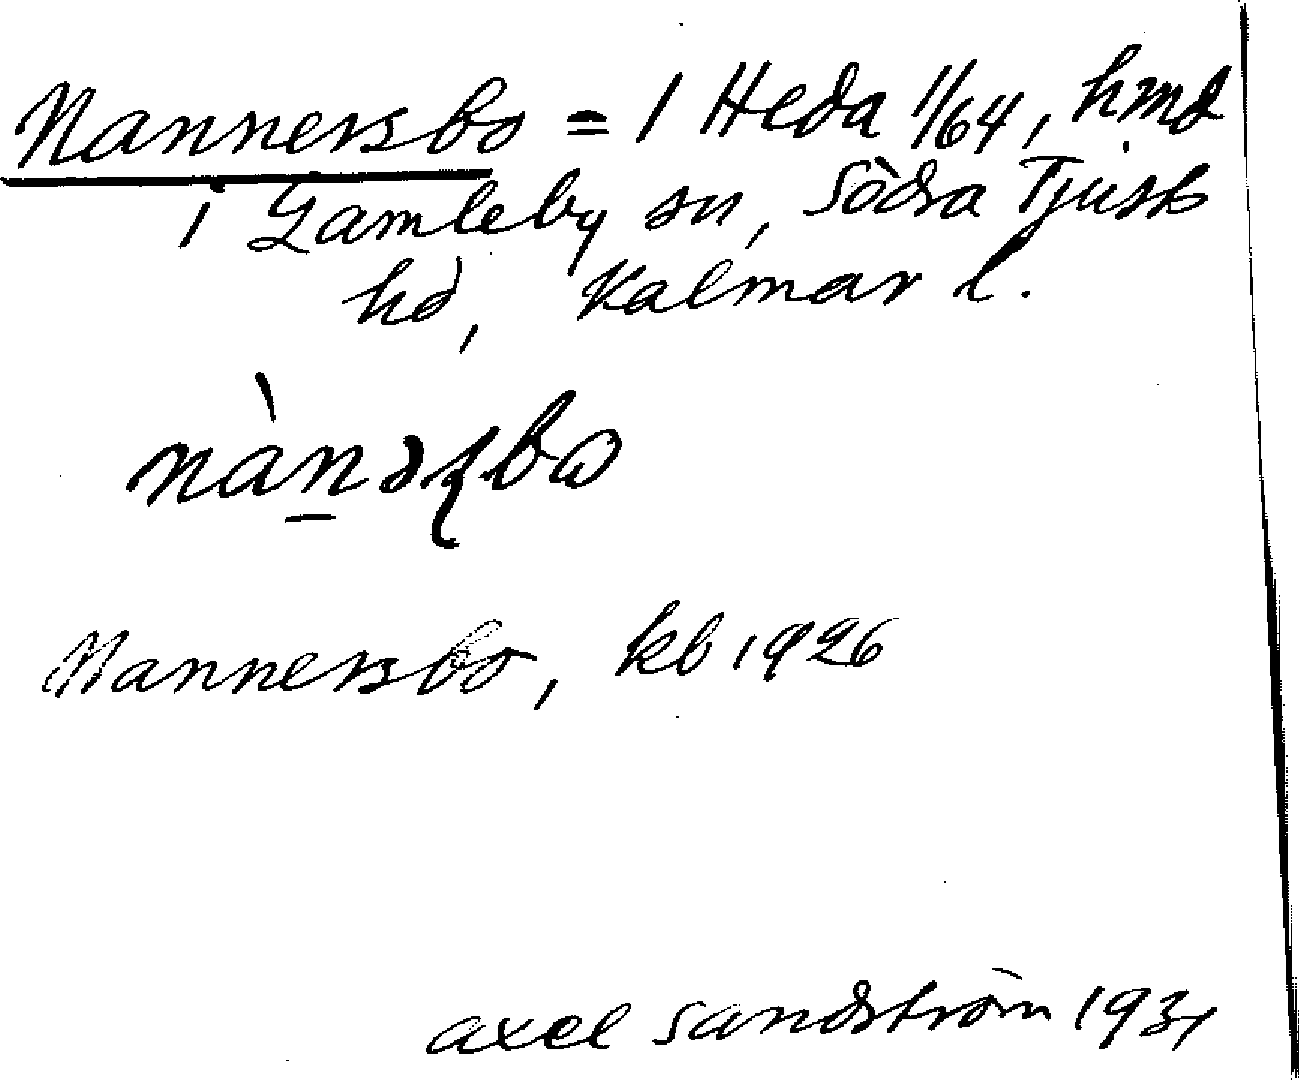 Nannersbo = 1 Heda 1/64, hmd
i Gamleby sn, Södra Tjust
hd, Kalmar l.
Nannersbo, kb 1926
Axel Sandström 1931